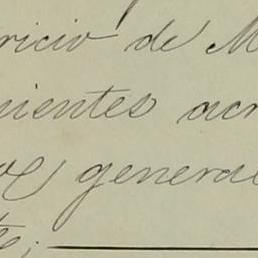 ricio de M
nientes acr
os generale
te;